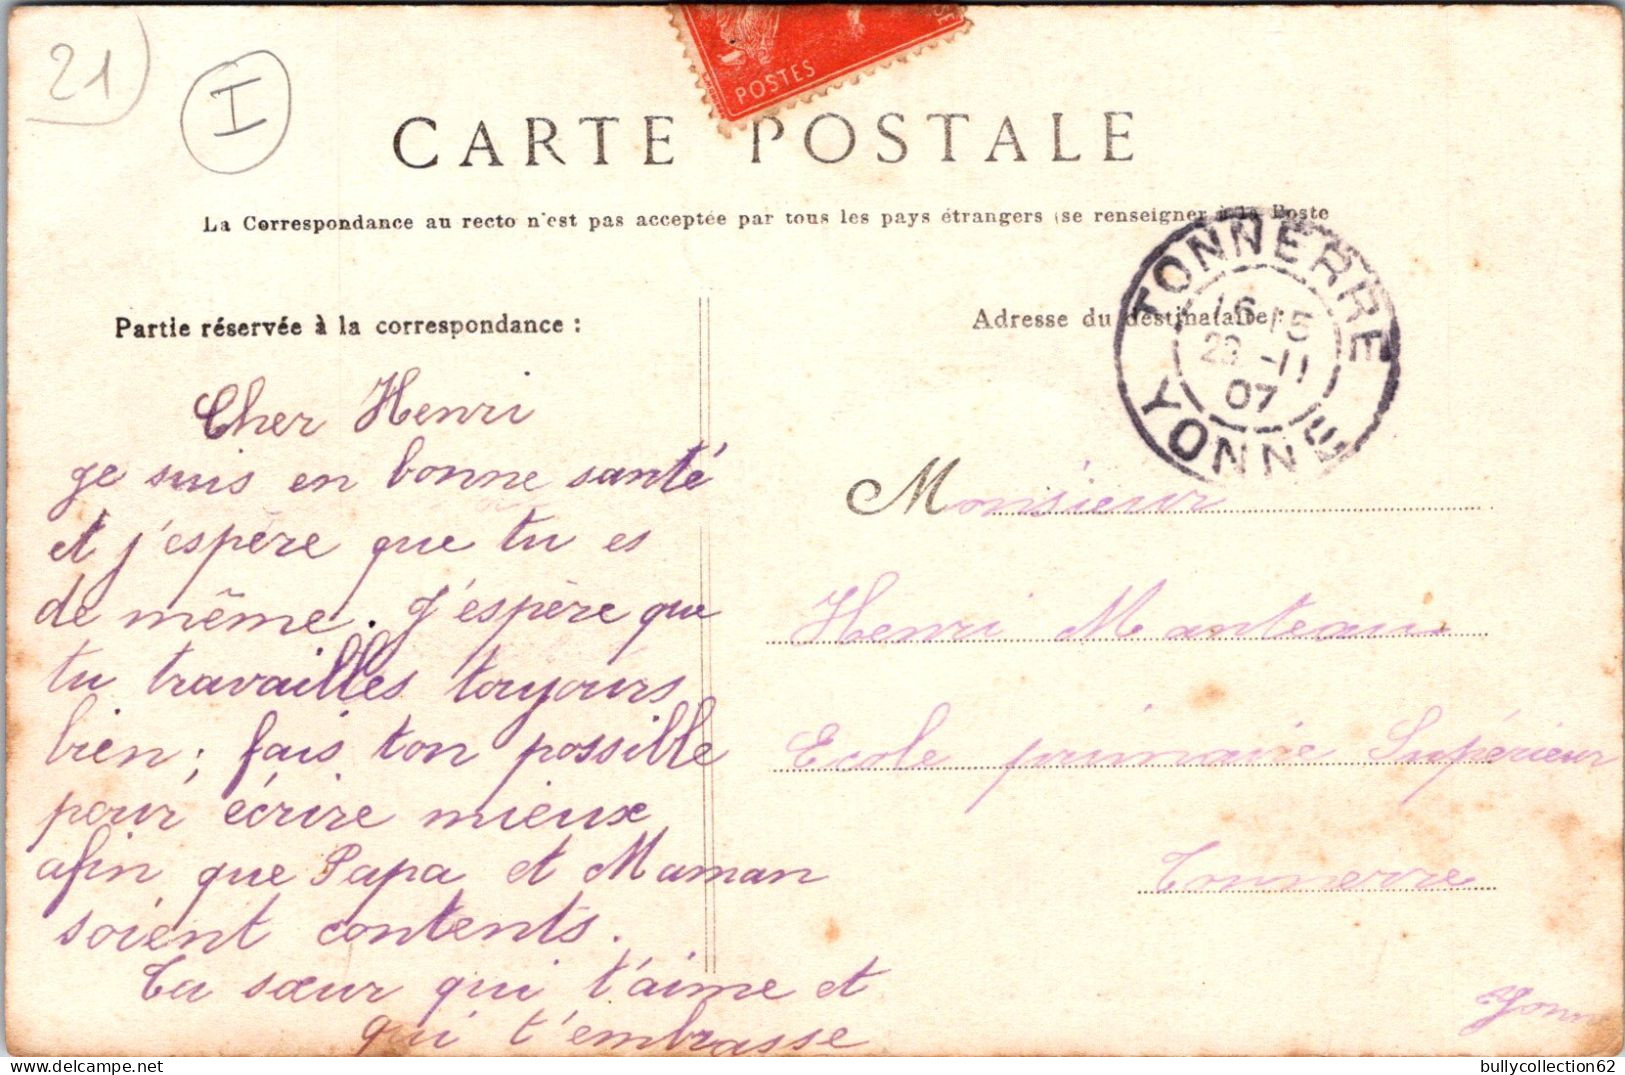 21
I
POSTES
CARTE POSTALE
La Correspondance au recto n'est pas acceptée par tous les pays étrangers (se renseigner à la Poste
Partie réservée à la correspondance :
Cher Henri
je suis en bonne santé
et j'espère que tu es
de même. J'espère que
tu travailles toujours
bien ; fais ton possible
pour écrire mieux
afin que Papa et Maman
soient contents.
Ta sœur qui t'aime et
qui t'embrasse
Adresse du destinataire :
TONNERRE
16 15
-11
07
YONNE
Monsieur
Henri Manteau
Ecole primaire Supérieur
Tonnerre
Yonne
bullycollection62